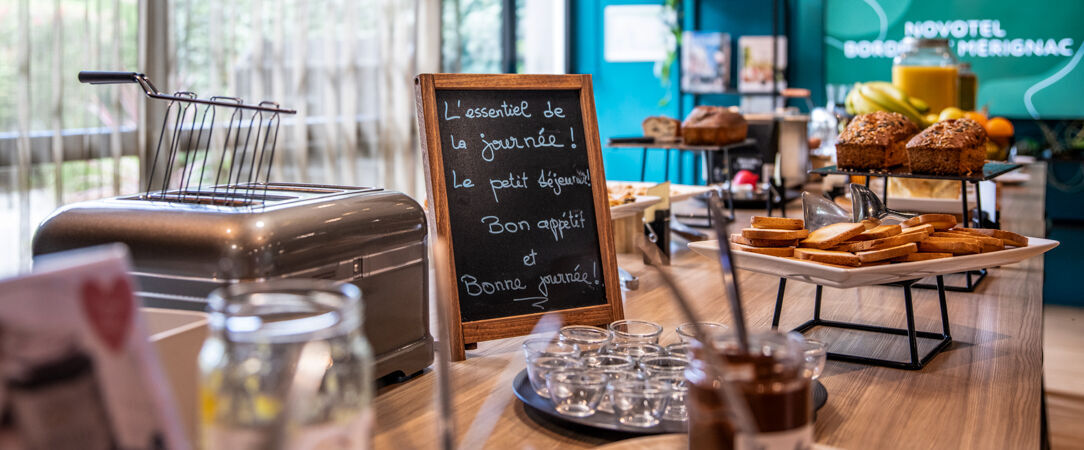 L'essentiel de
la journée !
Le petit déjeuner !
Bon appétit
et
Bonne journée !
NOVOTEL
MERIGNAC